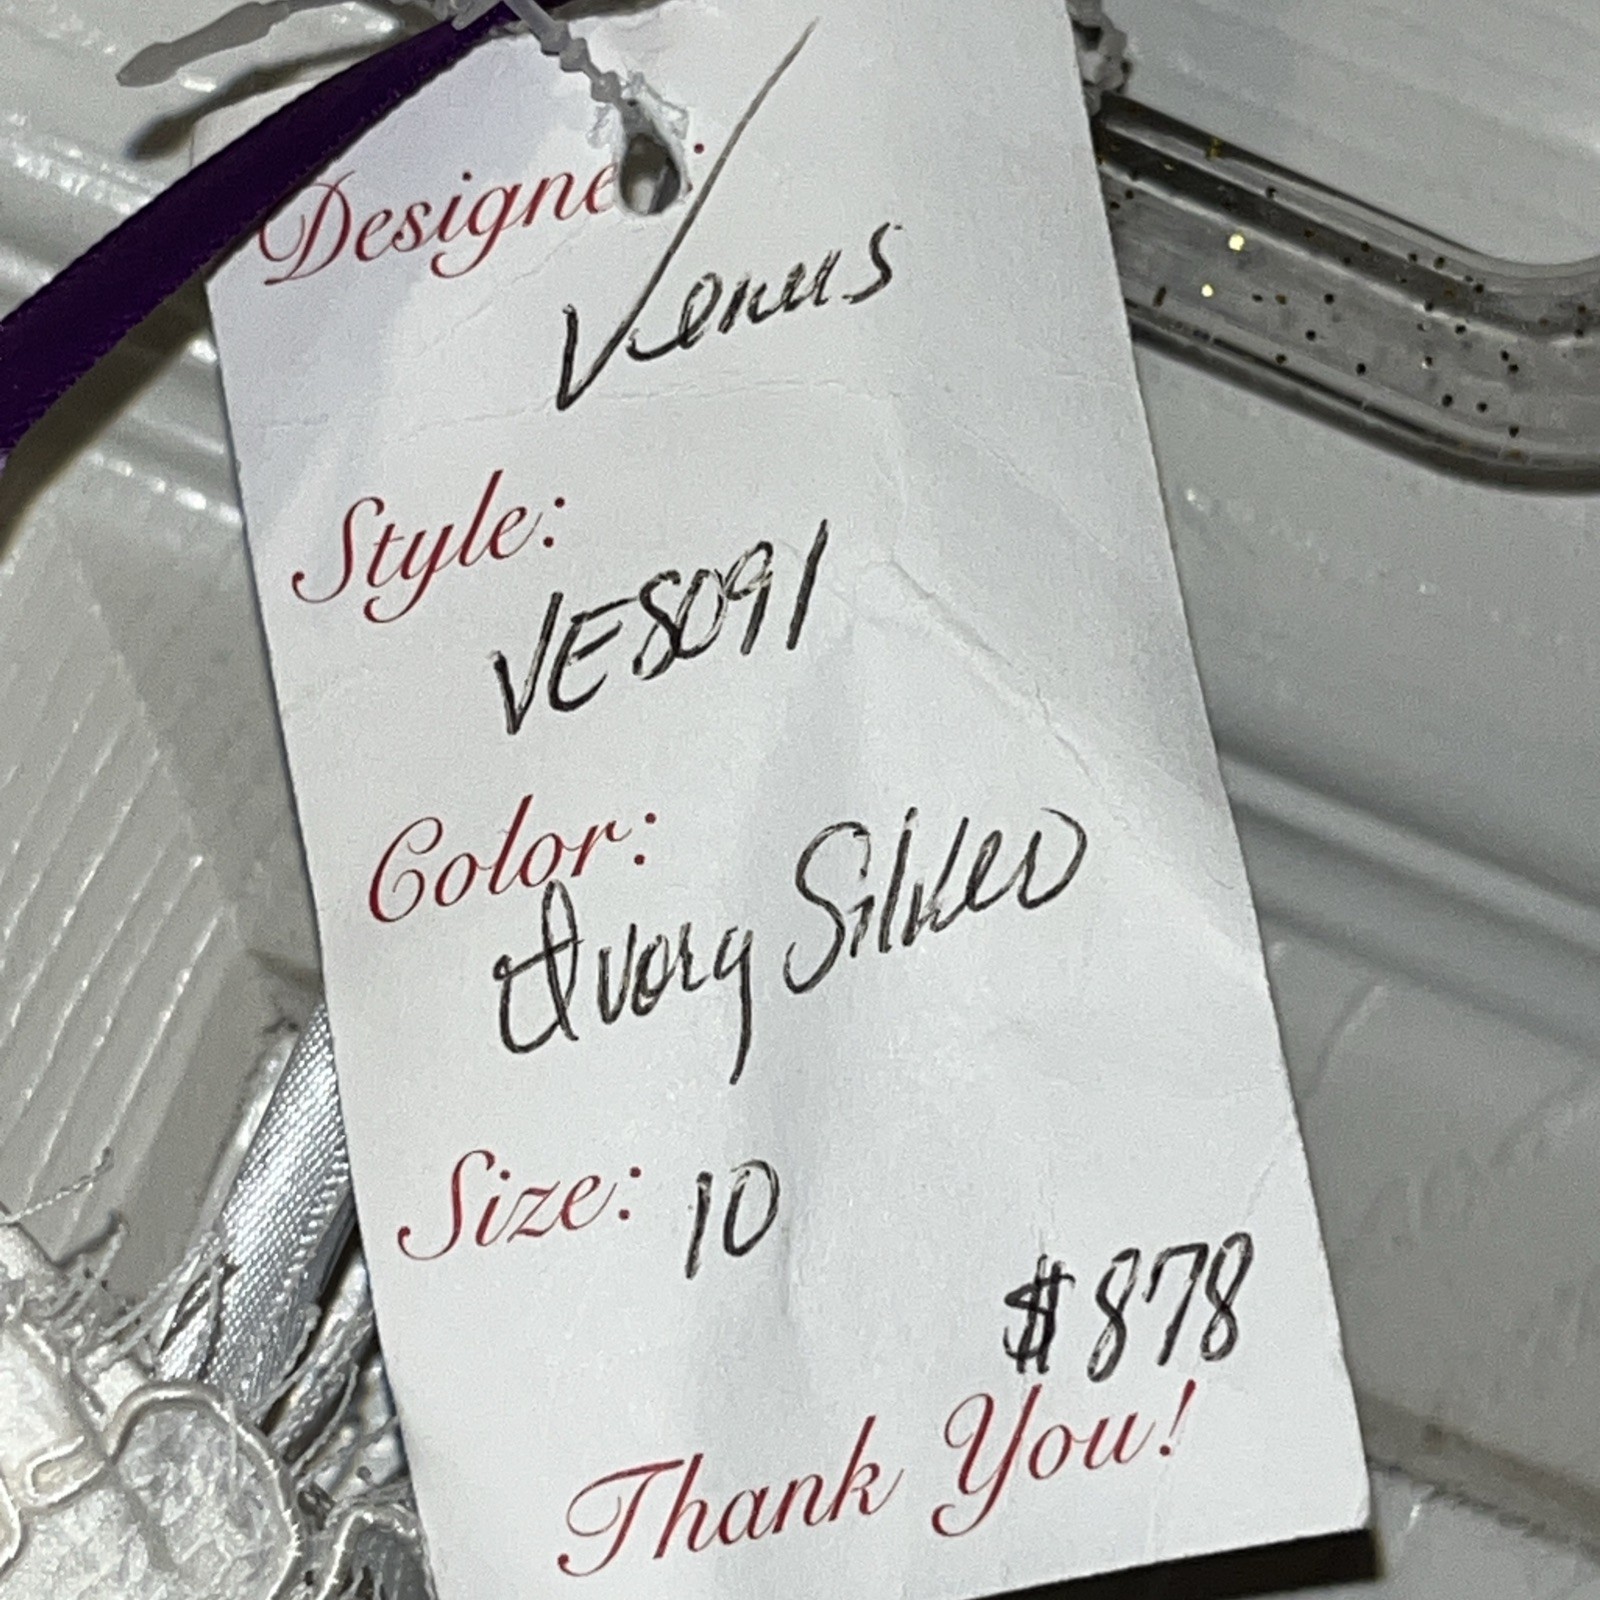 Designe :
Venus
Style:
VE8091
Color:
Ivory Silver
Size: 10
$878
Thank You!